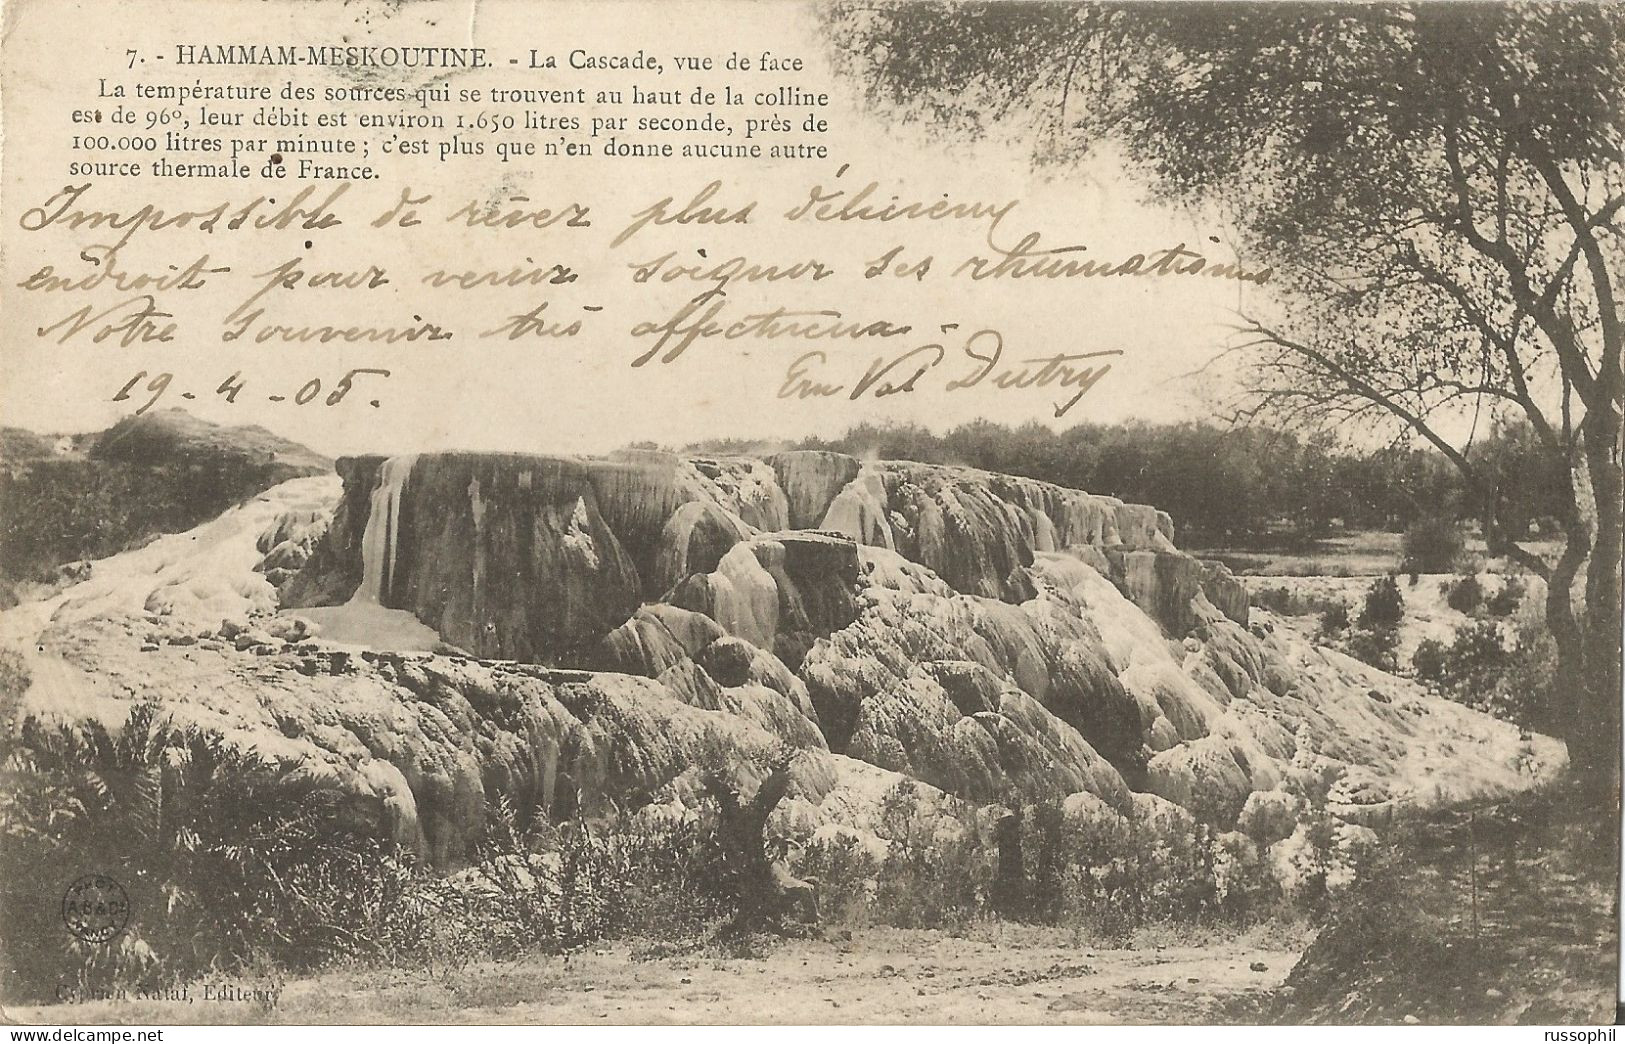 7. - HAMMAM-MESKOUTINE. - La Cascade, vue de face
La température des sources qui se trouvent au haut de la colline
est de 96º, leur débit est environ 1.650 litres par seconde, près de
100.000 litres par minute ; c'est plus que n'en donne aucune autre
source thermale de France.
Impossible de rêver plus délicieux
endroit pour venir soigner ses rhumatismes
Notre souvenir très affectueux -
19 - 4 - 05. Em Val Dutry
PHOT
A.B & Co
NANCY
Cyprien Nataf, Editeur
www.delcampe.net
russophil